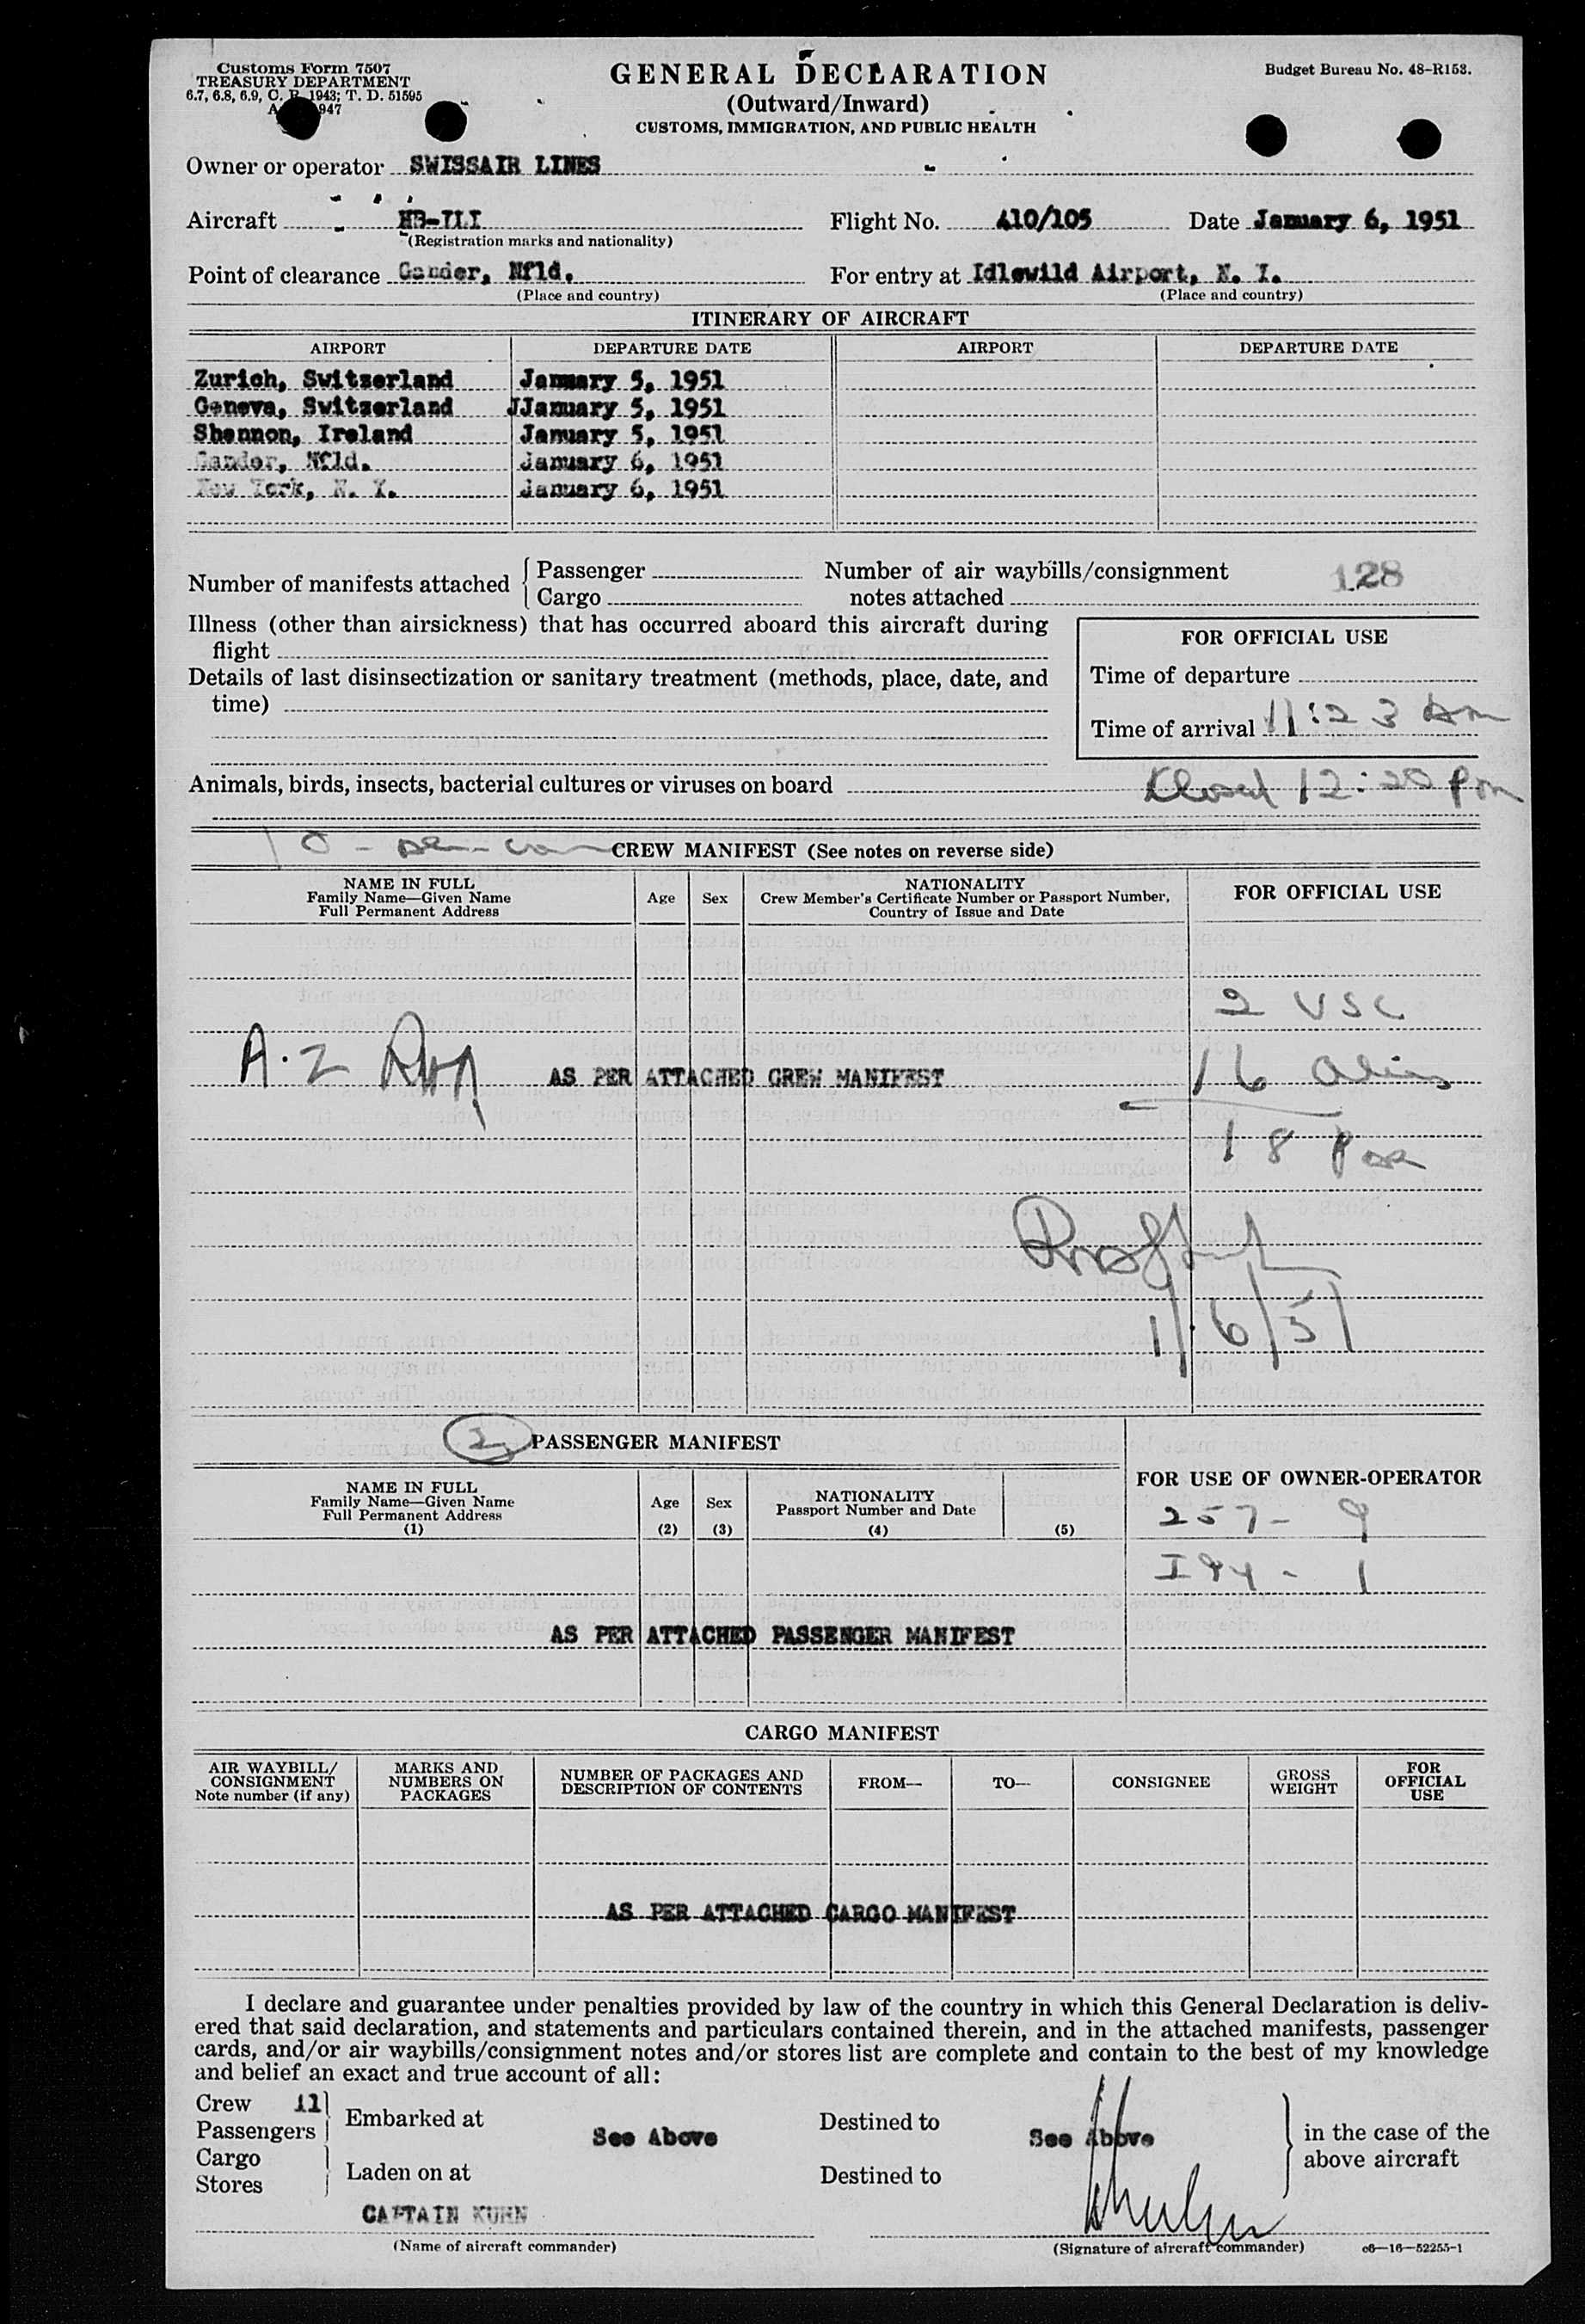 Customs Form 7507
TREASURY DEPARTMENT
6.7, 6.8, 6.9, C. R. 1943; T. D. 51595
947
GENERAL DECLARATION
(Outward/Inward)
CUSTOMS, IMMIGRATION, AND PUBLIC HEALTH
Budget Bureau No. 48-R153.
Owner or operator SWISSAIR LINES
Aircraft HB-ILI Flight No. 410/105 Date January 6, 1951
(Registration marks and nationality)
Point of clearance Gander, Nfld. For entry at Idlewild Airport, N. Y.
(Place and country) (Place and country)
ITINERARY OF AIRCRAFT
AIRPORT DEPARTURE DATE AIRPORT DEPARTURE DATE
Zurich, Switzerland January 5, 1951
Geneva, Switzerland JJanuary 5, 1951
Shannon, Ireland January 5, 1951
Gander, Nfld. January 6, 1951
New York, N. Y. January 6, 1951
Number of manifests attached { Passenger Number of air waybills/consignment 128
Cargo notes attached
Illness (other than airsickness) that has occurred aboard this aircraft during
flight
Details of last disinsectization or sanitary treatment (methods, place, date, and
time)
FOR OFFICIAL USE
Time of departure
Time of arrival 11:23 Am
Animals, birds, insects, bacterial cultures or viruses on board Closed 12:20 Pm
CREW MANIFEST (See notes on reverse side)
NAME IN FULL
Family Name—Given Name
Full Permanent Address
Age Sex
NATIONALITY
Crew Member's Certificate Number or Passport Number,
Country of Issue and Date
FOR OFFICIAL USE
2 USC
A.Z
AS PER ATTACHED CREW MANIFEST 16 Aliens
18 Pax
1/6/51
2 PASSENGER MANIFEST
NAME IN FULL
Family Name—Given Name
Full Permanent Address
(1)
Age
(2)
Sex
(3)
NATIONALITY
Passport Number and Date
(4) (5)
FOR USE OF OWNER-OPERATOR
257 - 9
I94 - 1
AS PER ATTACHED PASSENGER MANIFEST
CARGO MANIFEST
AIR WAYBILL/
CONSIGNMENT
Note number (if any)
MARKS AND
NUMBERS ON
PACKAGES
NUMBER OF PACKAGES AND
DESCRIPTION OF CONTENTS
FROM— TO— CONSIGNEE
GROSS
WEIGHT
FOR
OFFICIAL
USE
AS PER ATTACHED CARGO MANIFEST
I declare and guarantee under penalties provided by law of the country in which this General Declaration is deliv-
ered that said declaration, and statements and particulars contained therein, and in the attached manifests, passenger
cards, and/or air waybills/consignment notes and/or stores list are complete and contain to the best of my knowledge
and belief an exact and true account of all:
Crew 11
Passengers
Embarked at See Above Destined to See Above
Cargo
Stores
Laden on at Destined to
in the case of the
above aircraft
CAPTAIN KUHN
(Name of aircraft commander) (Signature of aircraft commander) c6—16—52255-1